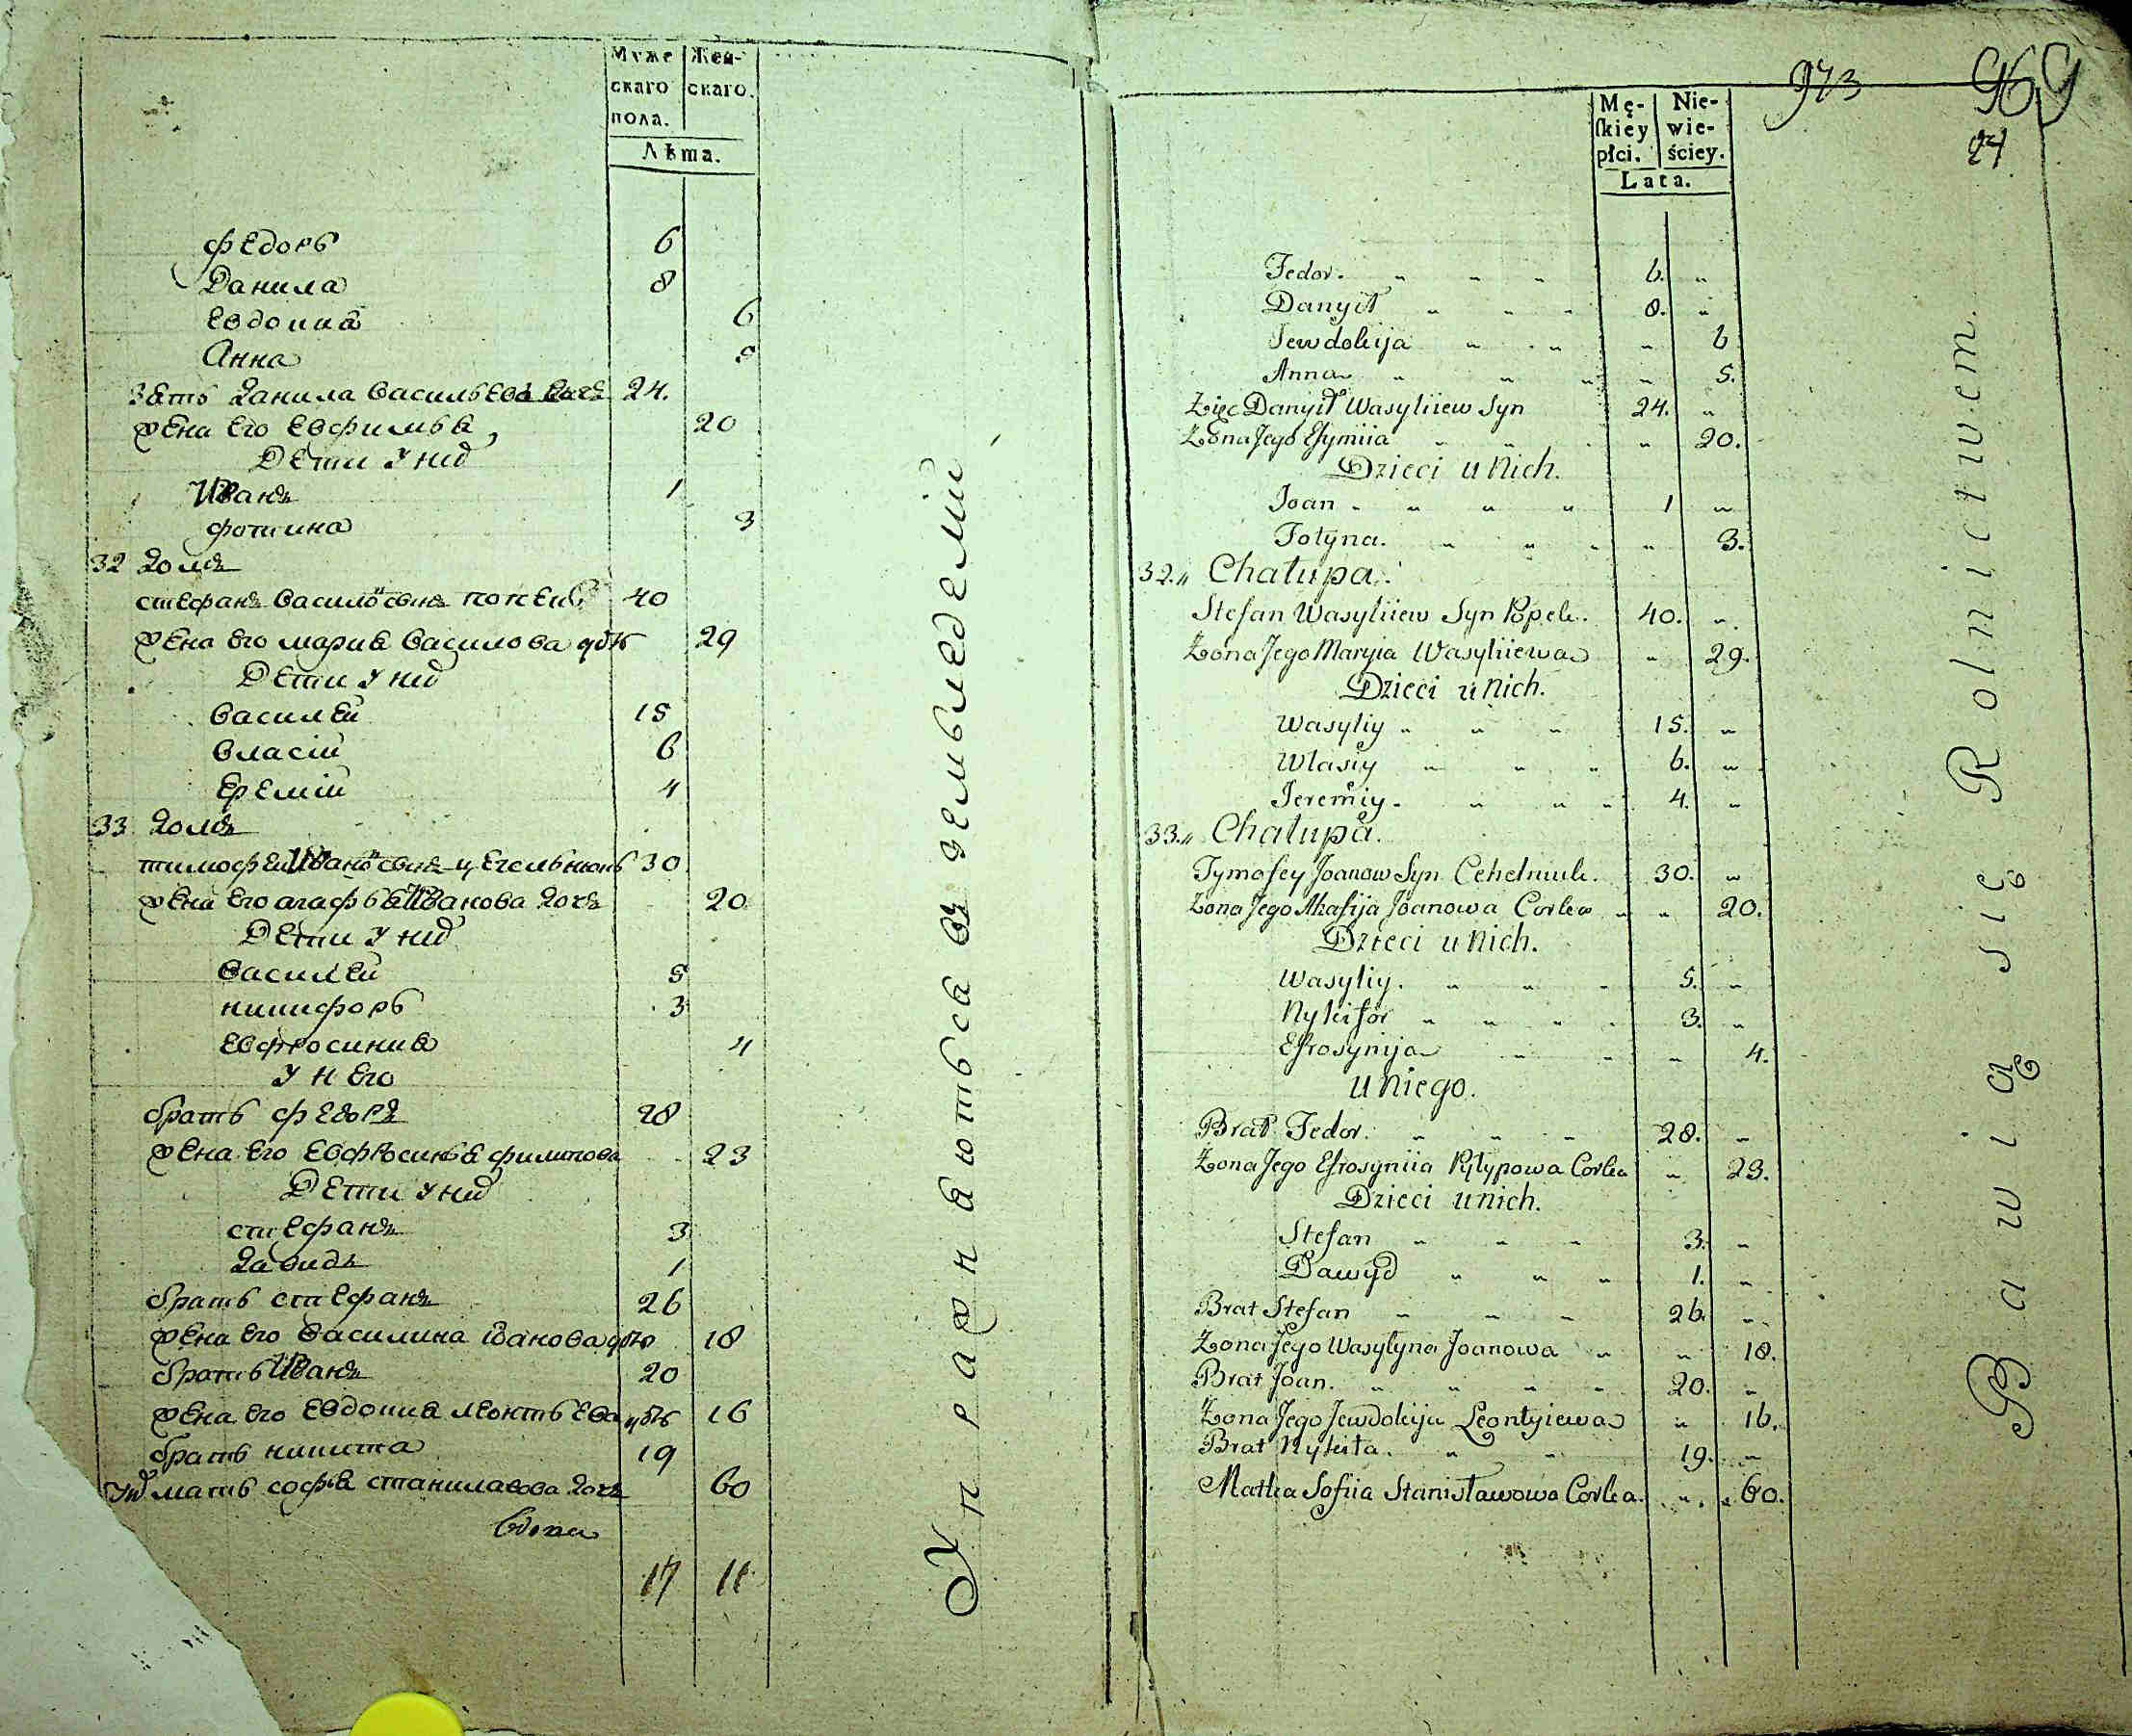 Муже Жен-
скаго скаго.
пола.
Лѣта.
Федоръ 6
Данила 8
Евдокиа 6
Анна 5
Зять данила васильевъ 24.
жена его евфимья, 20
Дети у них
Иванъ 1
фотина 3
32 домъ
стефанъ василевъ сынъ 40
жена его мариа василова дочь 29
Дети у них
василей 15
власій 6
еремій 4
33 домъ
тимофей Ивановъ сынъ цегельнюкъ 30
жена его агафья Иванова дочъ 20
Дети у них
василей 5
никифоръ 3
евфросиния 4
у него
братъ федоръ 28
жена его евфросинья филипова 23
Дети у них
стефанъ 3
давидъ 1
братъ стефанъ 26
жена его василина іванова дочь 18
братъ Иванъ 20
жена его евдокиа леонтьева дочь 16
братъ никита 19
у них мать софья станилавова дочъ 60
вдова
17 11
Упражняються въ земледелии
973 969
24
Mę- Nie-
skiey wie-
płci. ściey.
Lata.
Fedor. " " " 6. "
Danyił " " " 8. "
Jewdokija " " " 6
Anna " " " " 5.
Zięć Danyił Wasyliiew Syn 24. "
Żona Jego Efymiia " " " " 20.
Dzieci u Nich.
Joan " " " " 1 "
Fotyna. " " " " 3.
32. " Chałupa.
Stefan Wasyliiew Syn 40. "
Żona Jego Maryia Wasyliiewa " 29.
Dzieci u Nich.
Wasyliy " " " 15. "
Własiy " " " 6. "
Jeremiy " " " 4. "
33. " Chałupa.
Tymofey Joanow Syn Cehelniuk. 30. "
Żona Jego Ahafija Joanowa Corka " " 20.
Dzieci u Nich.
Wasyliy. " " " 5. "
Nykifor " " " " 3. "
Efrosynija " " " 4.
u Niego.
Brat Fedor. " " " 28. "
Żona Jego Efrosyniia Pylypowa Corka " 23.
Dzieci u nich.
Stefan " " " 3. "
Dawyd " " " 1. "
Brat Stefan " " " 26. "
Żona Jego Wasylyna Joanowa " " 18.
Brat Joan. " " " " 20. "
Żona Jego Jewdokija Leontyiewa " 16.
Brat Nykita. " " 19. "
Matka Sofiia Stanisławowa Corka. " " 60.
Bawią się Rolnictwem.